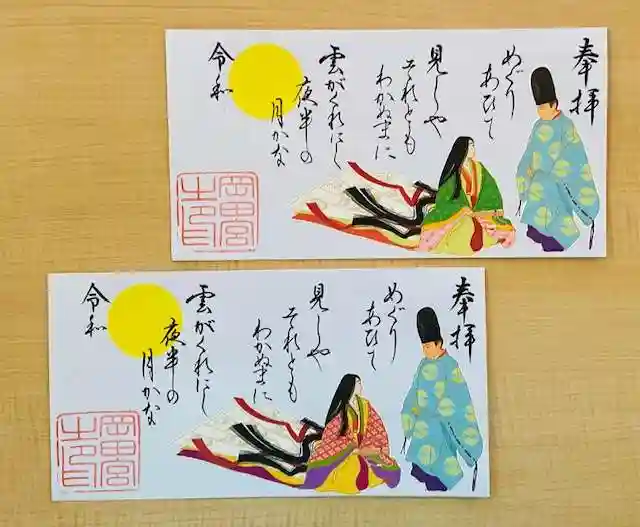 奉拝
めぐり
あひて
見しや
それとも
わかぬまに
雲がくれにし
夜半の
月かな
令和
岡田宮
之印
奉拝
めぐり
あひて
見しや
それとも
わかぬまに
雲がくれにし
夜半の
月かな
令和
岡田宮
之印